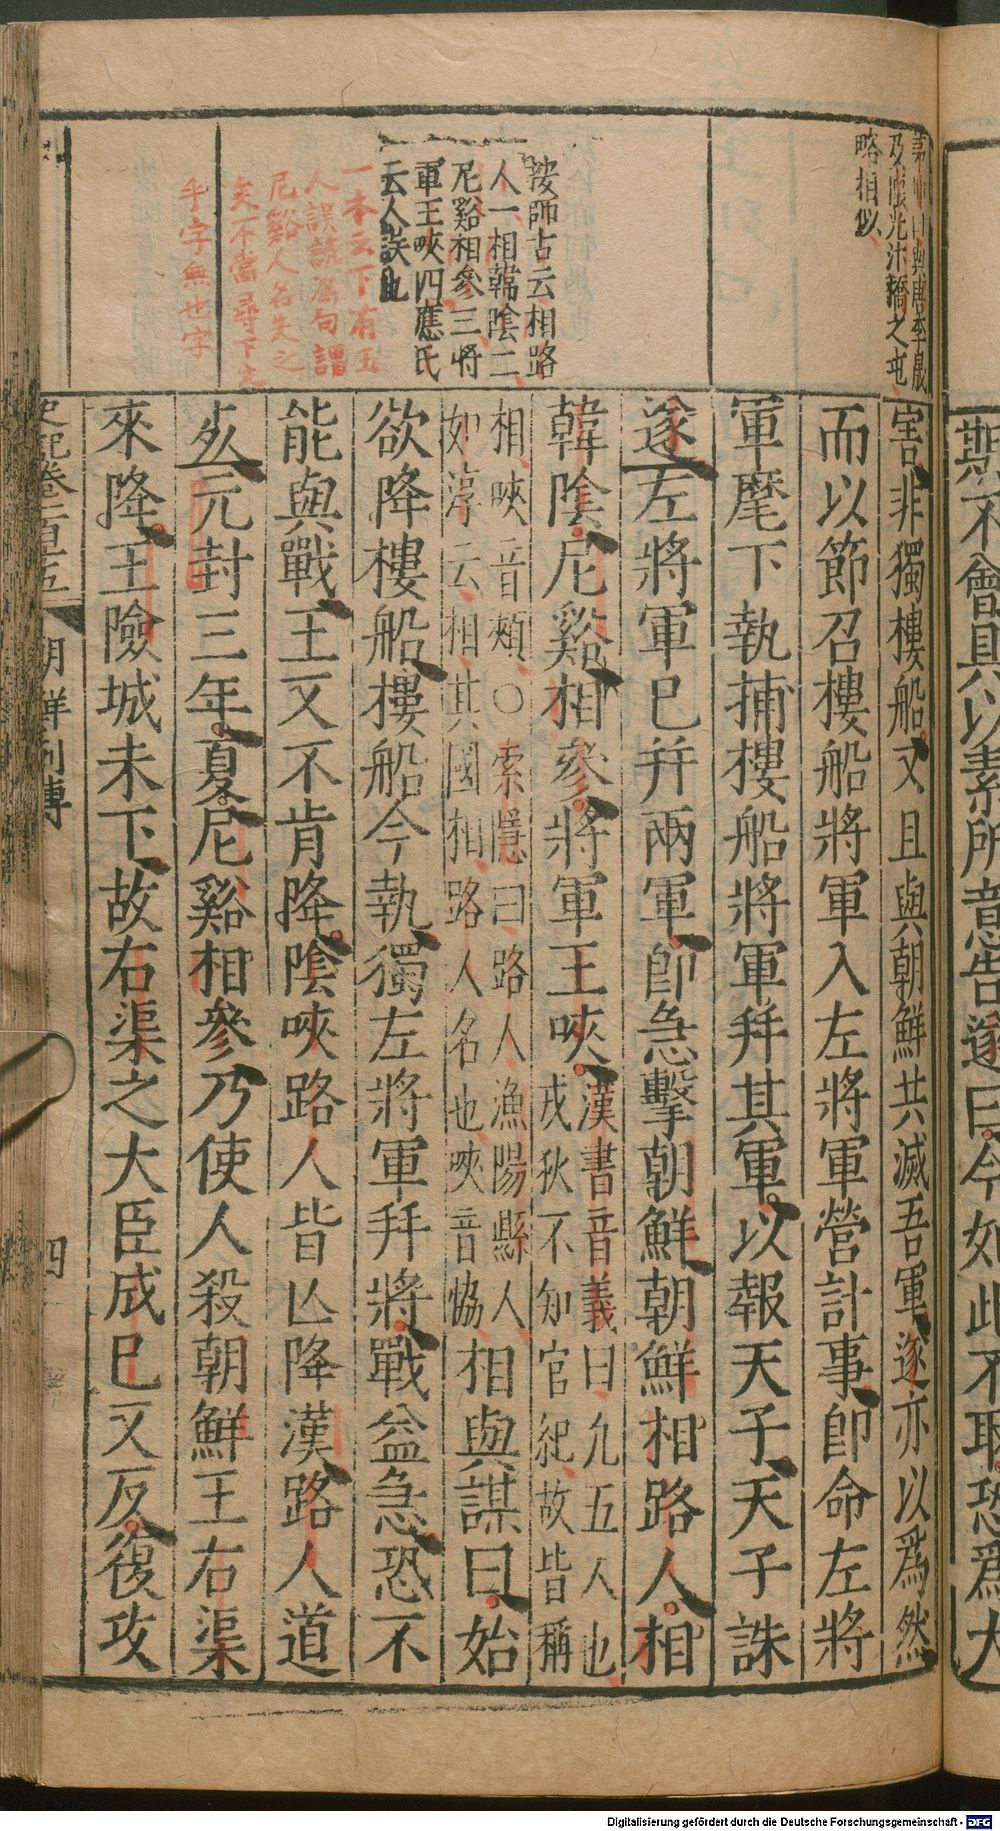 及張光汴橋之屯
略相似
按師古云相路
人一相韓陰二
尼谿相參三將
軍王唊四應氏
云人誤也
一本云下有五
人誤讀爲句謂
尼谿人名失之
矣不當尋下文
乎字無也字
期不會具以素所意告遂曰今如此不取恐爲大
害非獨樓船又且與朝鮮共滅吾軍遂亦以爲然
而以節召樓船將軍入左將軍營計事卽命左將
軍麾下執捕樓船將軍幷其軍以報天子天子誅
遂左將軍已幷兩軍卽急擊朝鮮朝鮮相路人相
韓陰尼谿相參將軍王唊
漢書音義曰凡五人也
戎狄不知官紀故皆稱
相唊音頰○索隱曰路人漁陽縣人
如淳云相其國相路人名也唊音協
相與謀曰始
欲降樓船樓船今執獨左將軍幷將戰益急恐不
能與戰王又不肯降陰唊路人皆亡降漢路人道
死元封三年夏尼谿相參乃使人殺朝鮮王右渠
來降王險城未下故右渠之大臣成巳又反復攻
史記卷一百十五
朝鮮列傳
四
Digitalisierung gefördert durch die Deutsche Forschungsgemeinschaft - DFG